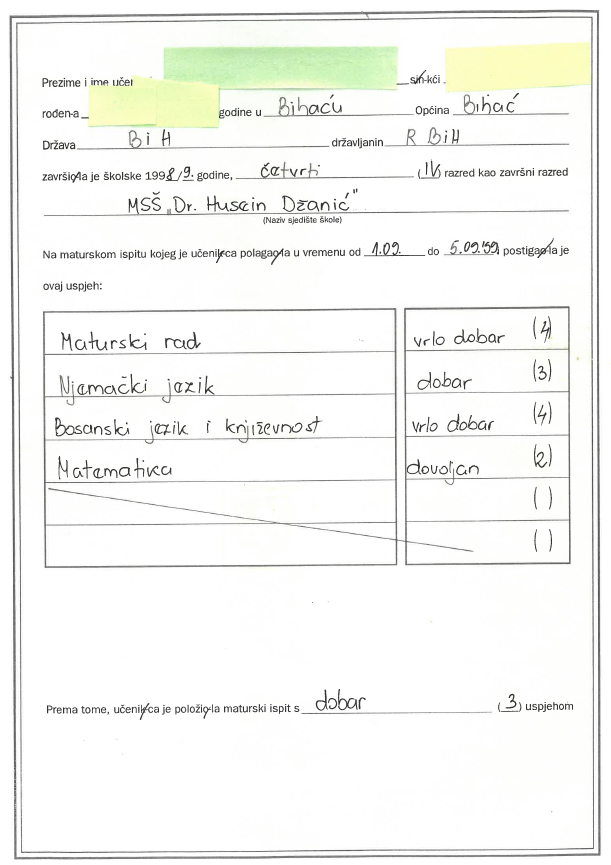 Prezime i ime učen sin-kći
rođen-a godine u Bihaću Općina Bihać
Država BiH državljanin R BiH
završio-la je školske 1998/9. godine, četvrti (IV) razred kao završni razred
MSŠ „Dr. Husein Džanić"
(Naziv sjedište škole)
Na maturskom ispitu kojeg je učenik-ca polagao-la u vremenu od 1.09. do 5.09.99. postigao-la je
ovaj uspjeh:
Maturski rad vrlo dobar (4)
Njemački jezik dobar (3)
Bosanski jezik i književnost vrlo dobar (4)
Matematika dovoljan (2)
( )
( )
Prema tome, učenik-ca je položio-la maturski ispit s dobar (3) uspjehom